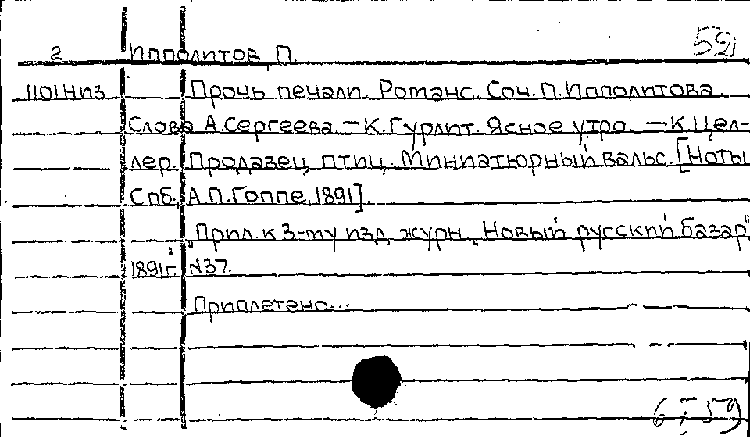 59
2 Ипполитов, П.
Прочь печали. Романс. Соч. П. Ипполитова.
Слова А. Сергеева. — К. Гурлит. Ясное утро. — К. Цел-
лер. Продавец птиц. Миниатюрный вальс. [Ноты
Спб. А.П. Гоппе, 1891].
„Прил. к 3-му изд. журн. „Новый русский базар"
1891 г. №37.
Приплетено...